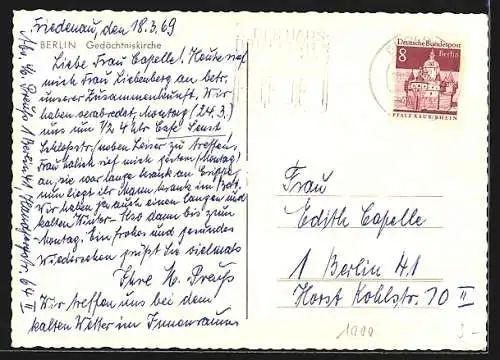 Friedenau, den 18.3.69
BERLIN Gedächtniskirche
Liebe Frau Capelle! Heute rief
mich Frau Liebenberg an betr.
unserer Zusammenkunft. Wir
haben verabredet, Montag (24.3.)
uns um 1/2 4 Uhr Café Senst,
Schloßstr. (neben Leiser zu treffen.
Frau rief mich gestern (Montag)
an, sie war lange krank an Grippe
nun liegt ihr Mann krank im Bett.
Wir haben ja auch einen langen und
kalten Winter. Also dann bis zum
Montag. Ein frohes und gesundes
Wiedersehen grüßt Sie vielmals
Ihre H. Preuß
Wir treffen uns bei dem
kalten Wetter im Innenraum
Abs. Preuß 1 Berlin 41, 64 II
Deutsche Bundespost
8 Berlin
PFALZ KAUB/RHEIN
Frau
Edith Capelle
1 Berlin 41
Horst Kohlstr. 10 II